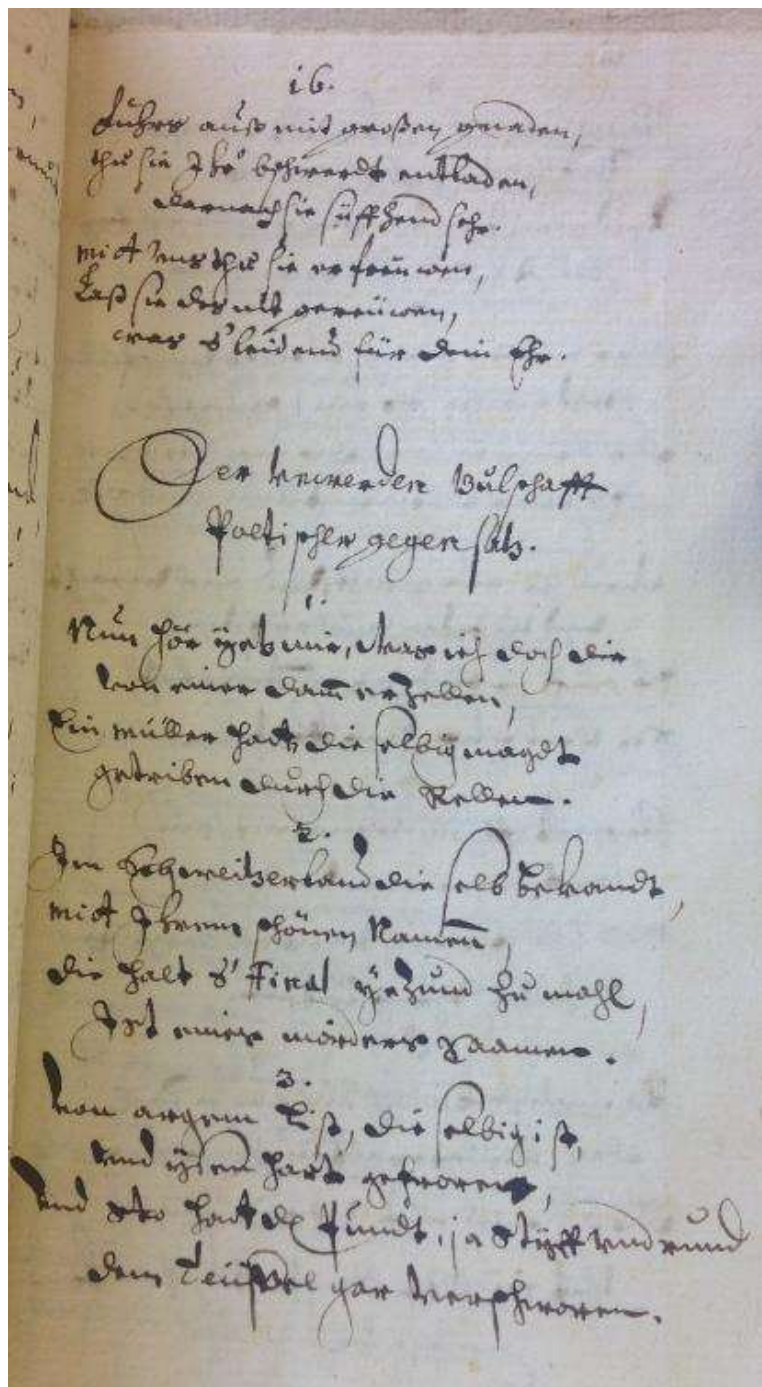 16.
Führs auß mit großen gnaden,
thu sie Ihr bschwerdt entladen,
darnach sie süffzend sehr.
mit Uns thu sie erfreüwen,
Laß sie des nit gereüwen,
was s'leidend für dein Ehr.
Der Unwerden Bulschafft
Poetischer gegensatz.
1.
Nun hör yetz mir, was ich doch dir
von einer dam̄ erzellen,
Ein müller hatt die selbig magdt
getriben durch die Rellen.
2.
Im Schweitzerland die selb bekandt,
mit Ihrem schönen Namen̄,
die halt s' Final yezund zu mahl,
Ist eines mörders Saamen.
3.
Von argem List, die selbig ist,
und ysen hart gefroren,
Und hatt Pundt, ja styff und rund
dem Teüffel gar verschworen.